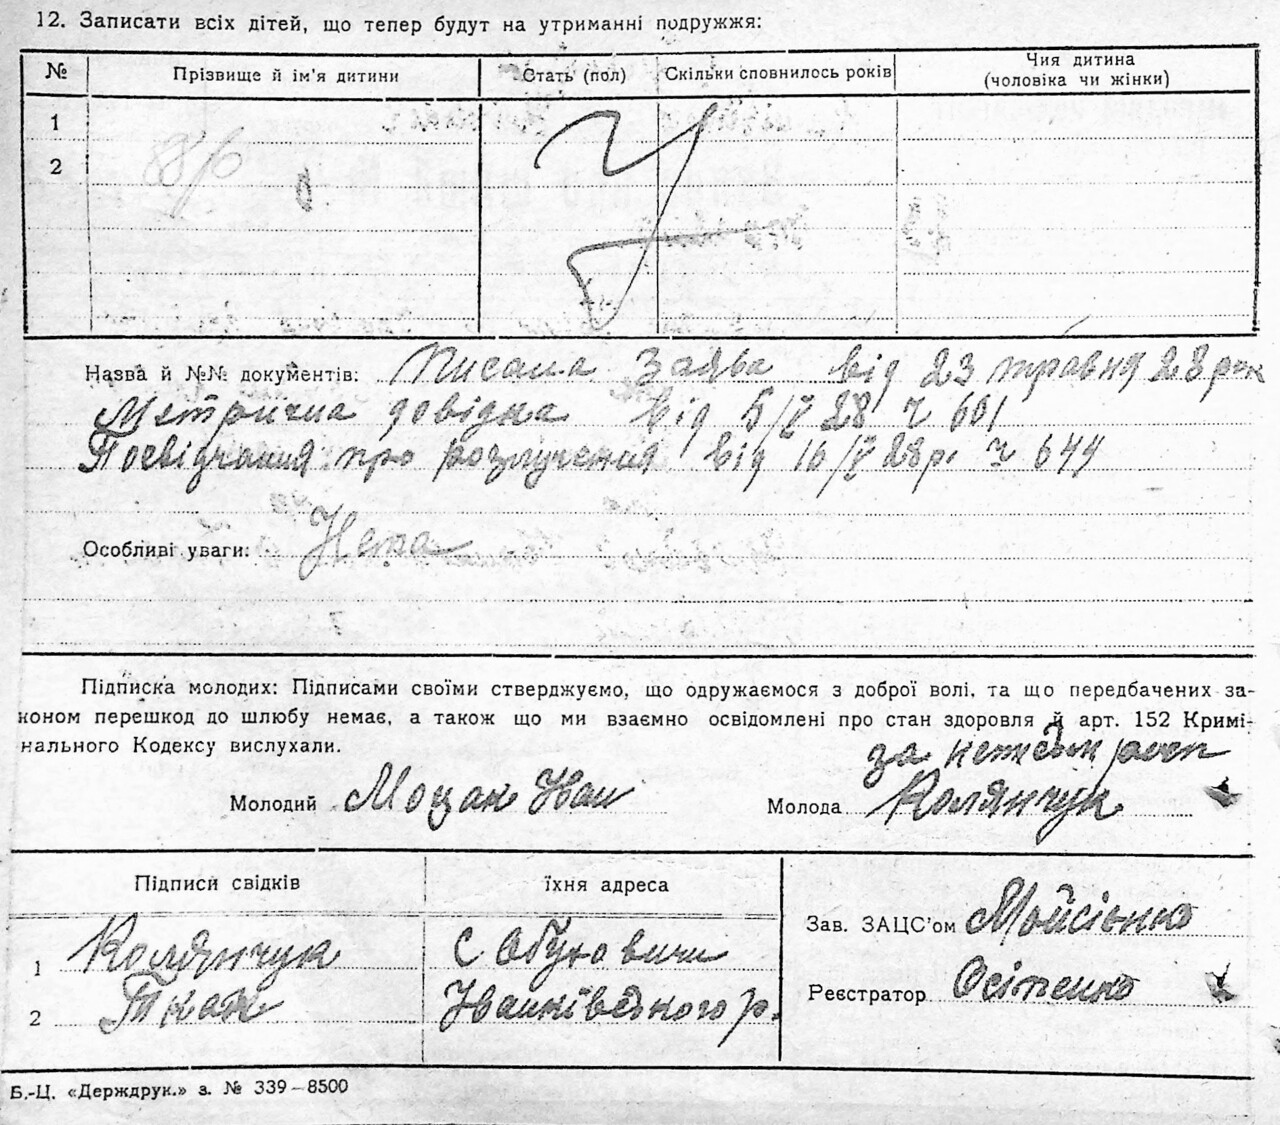 12. Записати всіх дітей, що тепер будут на утриманні подружжя:
№ Прізвище й ім'я дитини Стать (пол) Скільки сповнилось років Чия дитина
(чоловіка чи жінки)
1
2
Назва й №№ документів: Писана заява від 23 травня 28 рок
Метрична довідка від 5/V 28 ч 601
Посвідчання про розлучення від 16/V 28 р. ч 644
Особливі уваги: Нема
Підписка молодих: Підписами своїми стверджуємо, що одружаємося з доброї волі, та що передбачених за-
коном перешкод до шлюбу немає, а також що ми взаємно освідомлені про стан здоровля й арт. 152 Кримі-
нального Кодексу вислухали.
за росп
Молодий Моцак Іван Молода Колянчук
Підписи свідків їхня адреса
Зав. ЗАЦС'ом Мойсієнко
1 Колянчук С Обуховичи
Реєстратор Осіпенко
2 Ткач Іванківського р.
Б.-Ц. «Держдрук.» з. № 339—8500